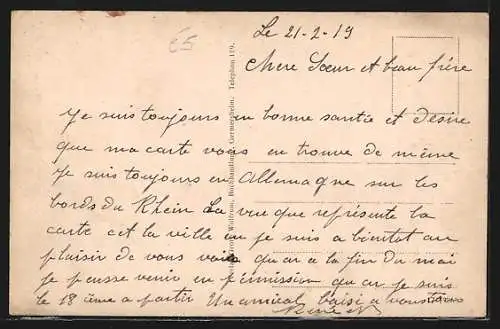 65
Le 21-2-19
Chere Soeur et beau frére
Je suis toujours en bonne santée et désire
que ma carte vous en trouve de même
Je suis toujours en Allemagne sur les
bords du Rhein La vue que représente la
carte est la ville ou je suis a bientot au
plaisir de vous voir car a la fin du mai
je pensse venir en permission car je suis
le 18 ème a partir Un amical baisé a vous tous
Germersheim. Telephon 129.